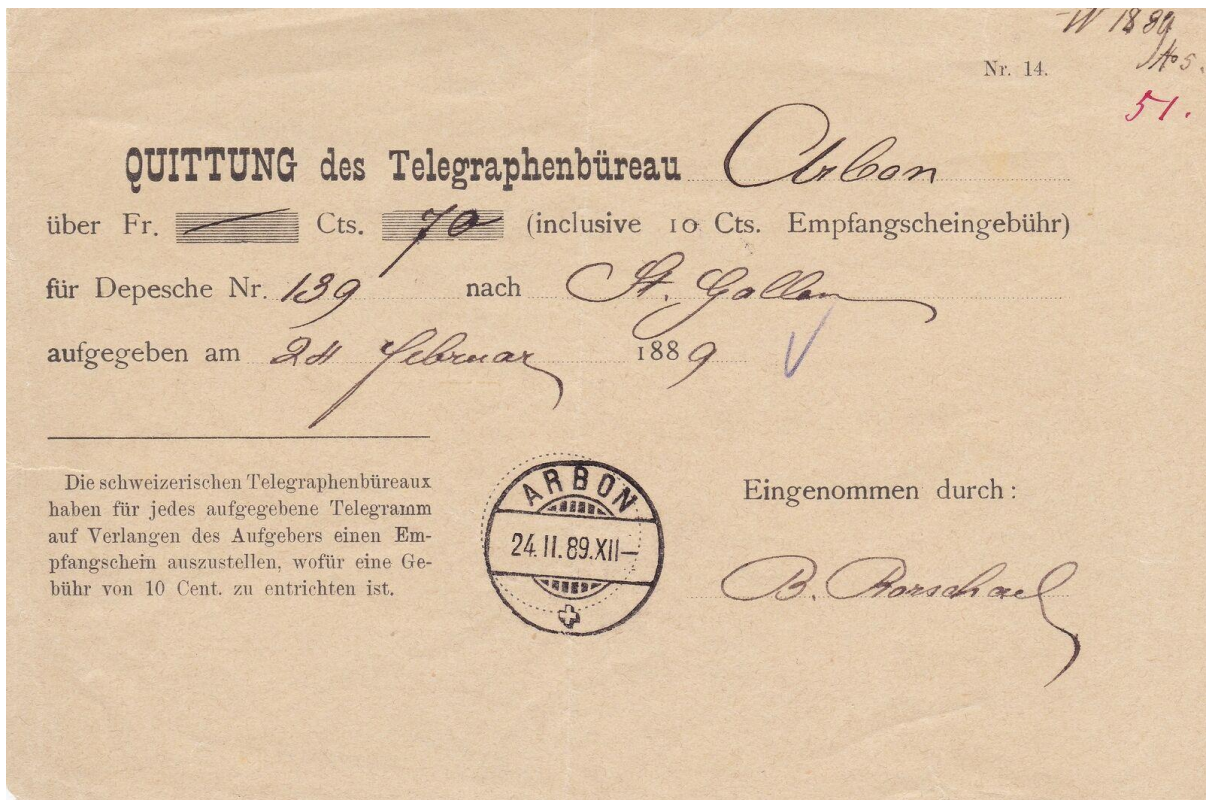 W 1889
Nr. 14.
51.
QUITTUNG des Telegraphenbüreau Arbon
über Fr. — Cts. 70 (inclusive 10 Cts. Empfangscheingebühr)
für Depesche Nr. 139 nach St. Gallen
aufgegeben am 24 Februar 1889
Die schweizerischen Telegraphenbüreaux
haben für jedes aufgegebene Telegramm
auf Verlangen des Aufgebers einen Em-
pfangschein auszustellen, wofür eine Ge-
bühr von 10 Cent. zu entrichten ist.
ARBON
24.II.89.XII—
Eingenommen durch:
B.